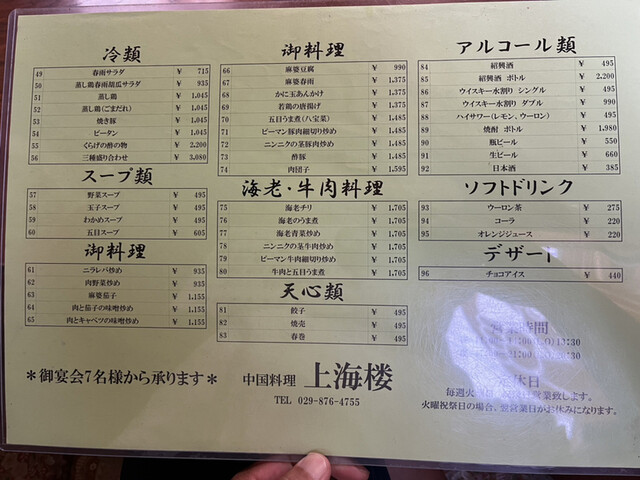 冷類
49 春雨サラダ ¥ 715
50 蒸し鶏春雨胡瓜サラダ ¥ 935
51 蒸し鶏 ¥ 1,045
52 蒸し鶏(ごまだれ) ¥ 1,045
53 焼き豚 ¥ 1,045
54 ピータン ¥ 1,045
55 くらげの酢の物 ¥ 2,200
56 三種盛り合わせ ¥ 3,080
スープ類
57 野菜スープ ¥ 495
58 玉子スープ ¥ 495
59 わかめスープ ¥ 495
60 五目スープ ¥ 605
御料理
61 ニラレバ炒め ¥ 935
62 肉野菜炒め ¥ 935
63 麻婆茄子 ¥ 1,155
64 肉と茄子の味噌炒め ¥ 1,155
65 肉とキャベツの味噌炒め ¥ 1,155
*御宴会7名様から承ります*
御料理
66 麻婆豆腐 ¥ 990
67 麻婆春雨 ¥ 1,375
68 かに玉あんかけ ¥ 1,375
69 若鶏の唐揚げ ¥ 1,375
70 五目うま煮(八宝菜) ¥ 1,485
71 ピーマン豚肉細切り炒め ¥ 1,485
72 ニンニクの茎豚肉炒め ¥ 1,485
73 酢豚 ¥ 1,485
74 肉団子 ¥ 1,595
海老・牛肉料理
75 海老チリ ¥ 1,705
76 海老のうま煮 ¥ 1,705
77 海老青菜炒め ¥ 1,705
78 ニンニクの茎牛肉炒め ¥ 1,705
79 ピーマン牛肉細切り炒め ¥ 1,705
80 牛肉と五目うま煮 ¥ 1,705
天心類
81 餃子 ¥ 495
82 焼売 ¥ 495
83 春巻 ¥ 495
中国料理 上海楼
TEL 029-876-4755
アルコール類
84 紹興酒 ¥ 495
85 紹興酒 ボトル ¥ 2,200
86 ウイスキー水割り シングル ¥ 495
87 ウイスキー水割り ダブル ¥ 990
88 ハイサワー(レモン、ウーロン) ¥ 495
89 焼酎 ボトル ¥ 1,980
90 瓶ビール ¥ 550
91 生ビール ¥ 660
92 日本酒 ¥ 385
ソフトドリンク
93 ウーロン茶 ¥ 275
94 コーラ ¥ 220
95 オレンジジュース ¥ 220
デザート
96 チョコアイス ¥ 440
営業時間
定休日
毎週火 営業致します。
火曜祝祭日の場合、翌営業日がお休みになります。